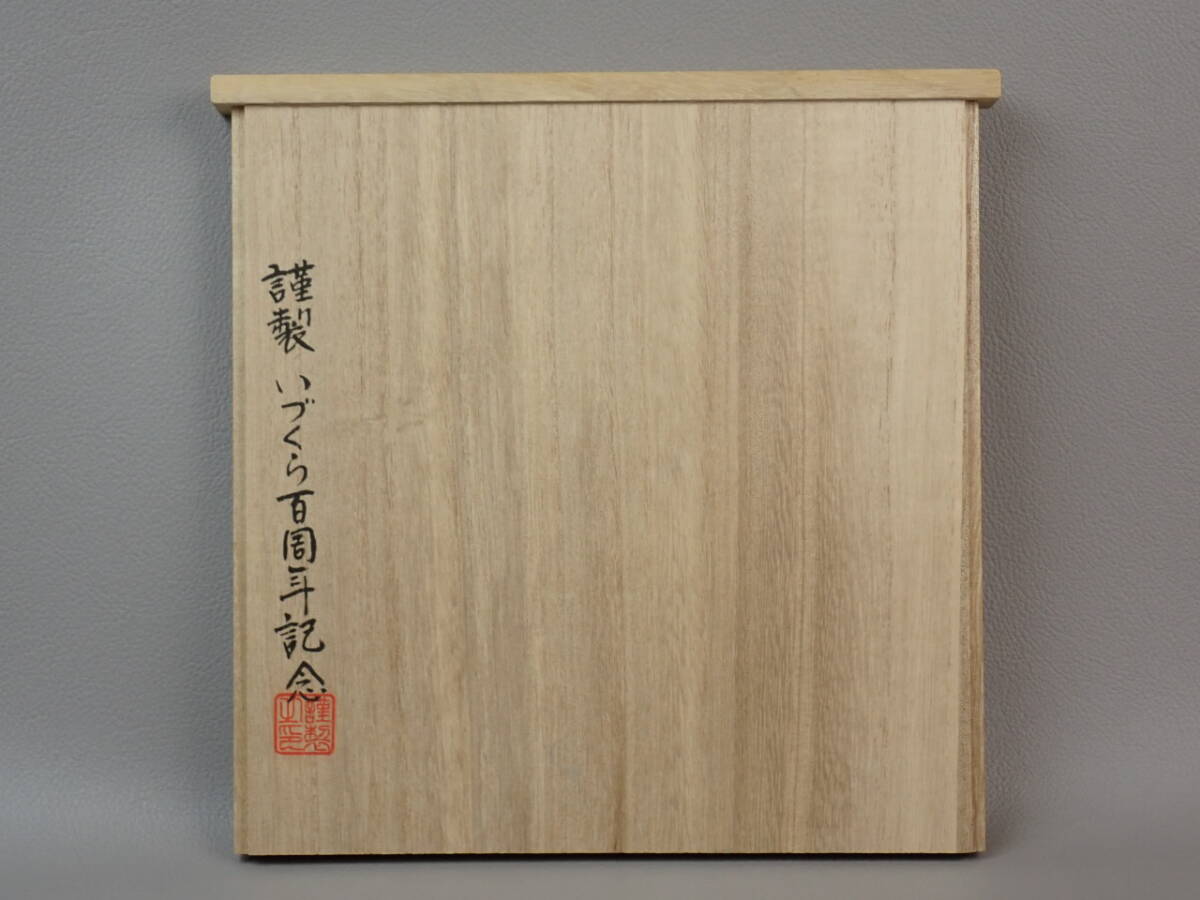 謹製 いづくら百周年記念
謹製之印